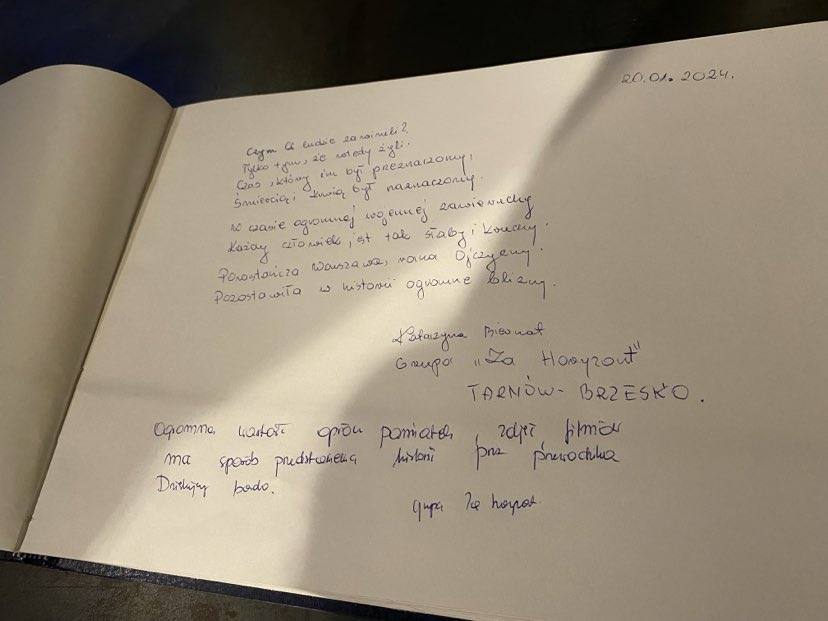 20.01.2024.
Czym Ci ludzie zawinili?
Tylko tym, że wtedy żyli.
Czas, który im był przeznaczony,
Śmiercią i krwią był naznaczony.
W czasie ogromnej wojennej zawieruchy
Każdy człowiek jest tak słaby i kruchy.
Powstańcza Warszawa, rana Ojczyzny.
Pozostawiła w historii ogromne blizny.
Katarzyna Biernat
Grupa "Za Horyzont"
TARNÓW - BRZESKO.
Ogromną wartość oprócz pamiątek, zdjęć filmów
ma sposób przedstawienia historii przez przewodnika
Dziękujemy bardzo.
Grupa Za horyzont